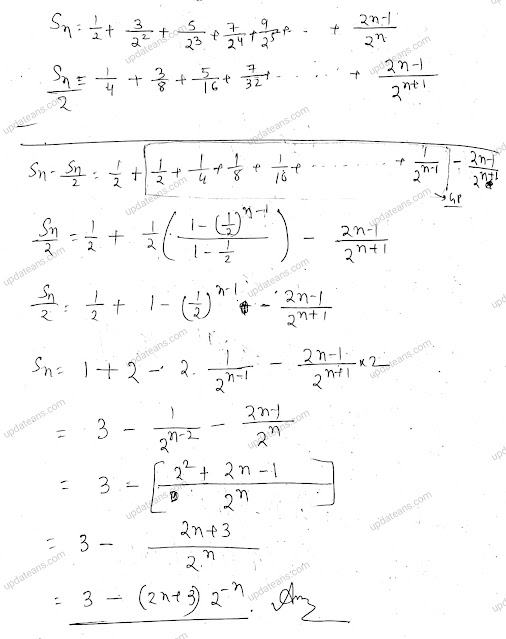 Sn = 1/2 + 3/2^2 + 5/2^3 + 7/2^4 + 9/2^5 + ..... + (2n-1)/2^n
Sn/2 = 1/4 + 3/8 + 5/16 + 7/32 + ........ + (2n-1)/2^(n+1)
Sn - Sn/2 = 1/2 + [1/2 + 1/4 + 1/8 + 1/16 + ........ + 1/2^(n-1)] - (2n-1)/2^(n+1)
→ GP
Sn/2 = 1/2 + 1/2 ((1 - (1/2)^(n-1))/(1 - 1/2)) - (2n-1)/2^(n+1)
Sn/2 = 1/2 + 1 - (1/2)^(n-1) - (2n-1)/2^(n+1)
Sn = 1 + 2 - 2 . 1/2^(n-1) - (2n-1)/2^(n+1) × 2
= 3 - 1/2^(n-2) - (2n-1)/2^n
= 3 - [(2^2 + 2n - 1)/2^n]
= 3 - (2n+3)/2^n
= 3 - (2n+3) 2^-n. Ans
updateans.com